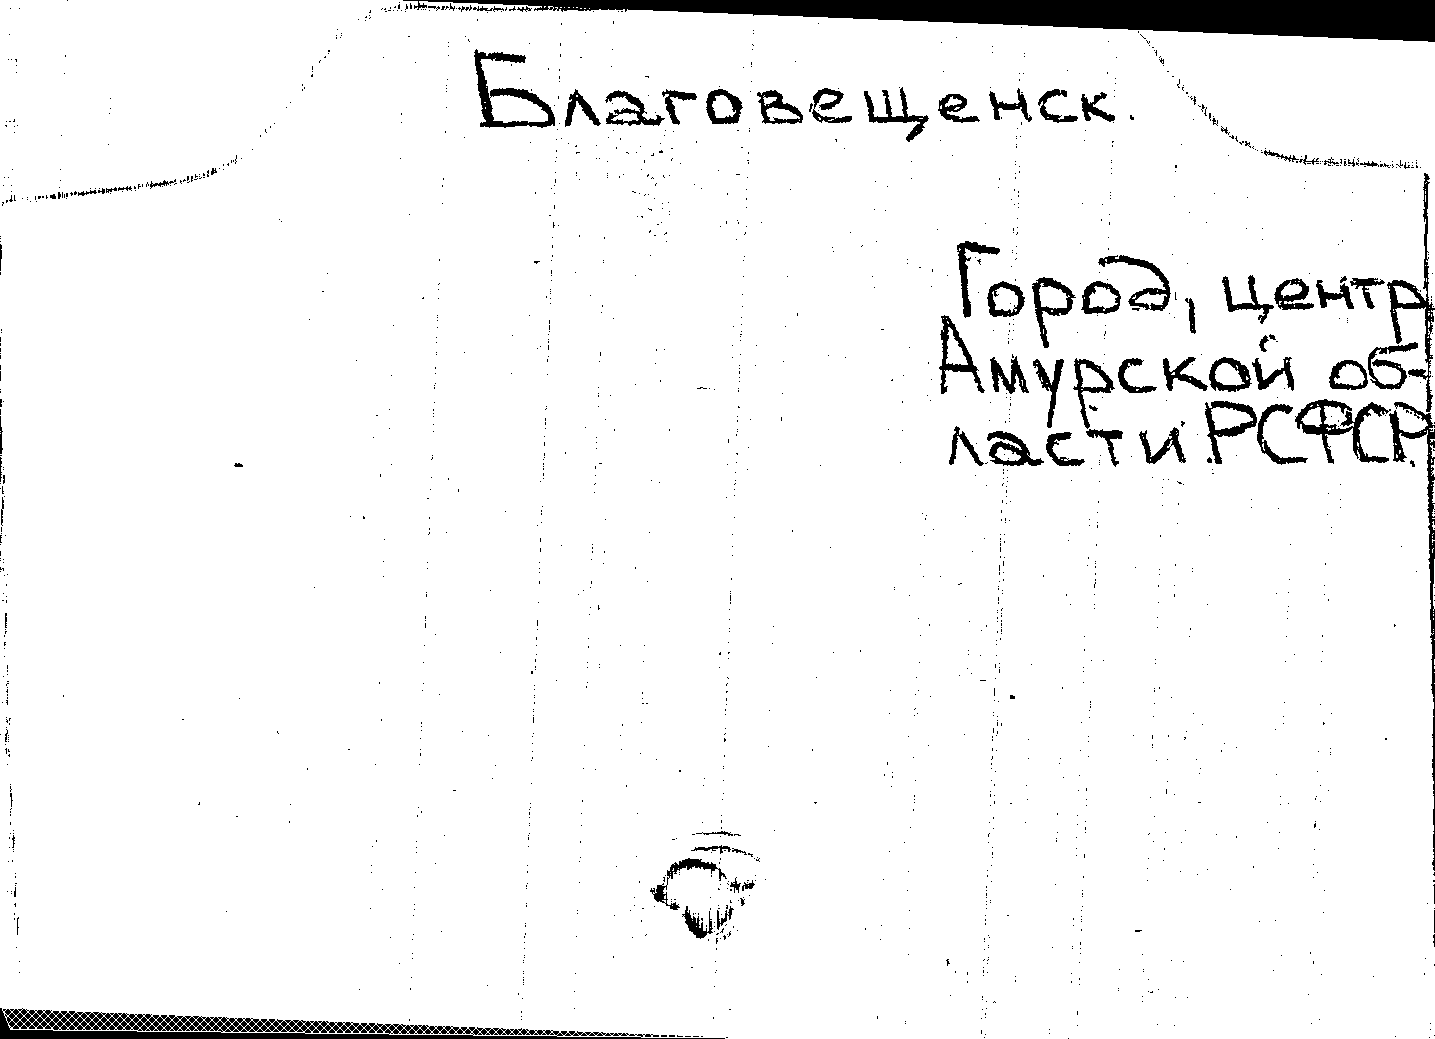 Благовещенск.
Город, центр
Амурской об-
ласти РСФСР.